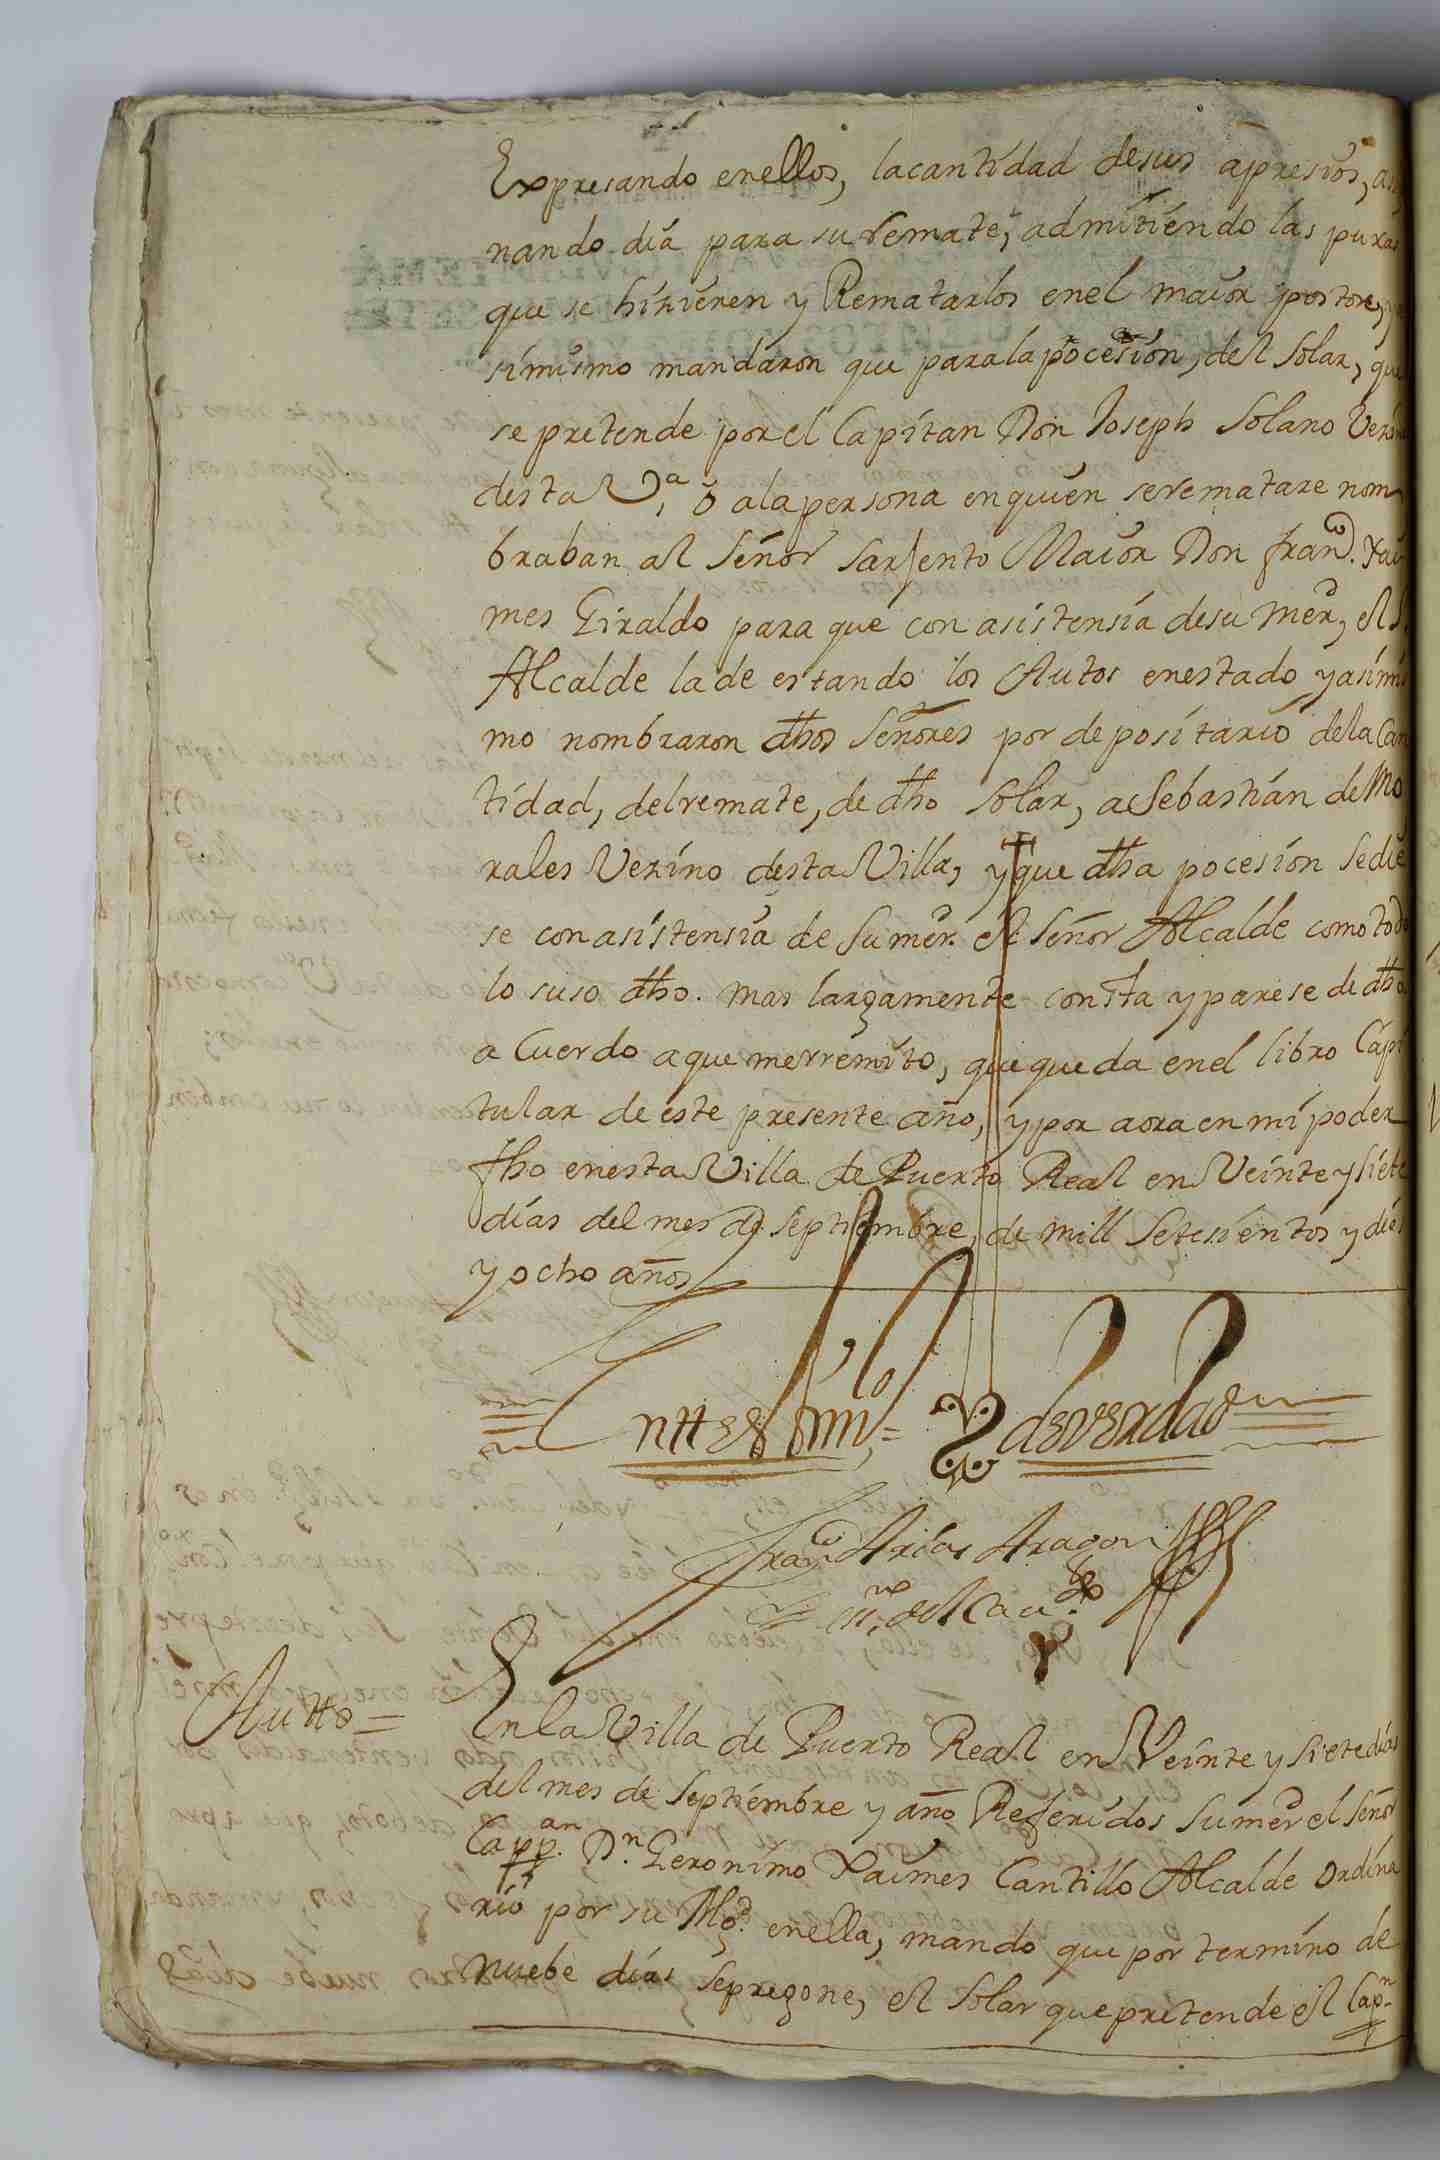 Expresando enellos, lacantidad desus apresios, asig
nando dia para su remate, admitiendo las puxas
que se hizieren y Rematarlos enel maior postor, y a
simismo mandaron que parala pocesion, del solar, que
se pretende por el Capitan Don Joseph Solano Vezino
desta Va, o ala persona enquien serematare nom
braban al Señor Sarjento Maior Don Franco. Xai
mes Giraldo para que con asistensia desu Merd, el Sr
Alcalde lade estando los Autos enestado yasimis
mo nombraron dhos Señores por depositario dela Can
tidad, delremate, de dho solar, a Sebastian de Mo
rales Vezino desta Villa, y que dha pocesion sedie
se con asistensia de Su merd. el Señor Alcalde como todo
lo suso dho. mas largamente consta y parese de dho
a Cuerdo aque merremito, que queda enel libro Capi
tular de este presente año, y por aora en mi poder
fho enesta Villa de Puerto Real en Veinte y siete
dias del mes de septiembre, de mill Setesientos y dies
y ocho años
Entre Rmo = deverdad
Franco Arias Aragon
Essno. del Cavdo.
Autto = En la Villa de Puerto Real en Veinte y siete dias
del mes de septiembre y año Referidos Sumerd el señor
Cappan. Dn. Geronimo Xaimes Cantillo Alcalde ordina
rio por su Magd. enella, mando que por termino de
nuebe dias sepregone, el solar que pretende el Capn.